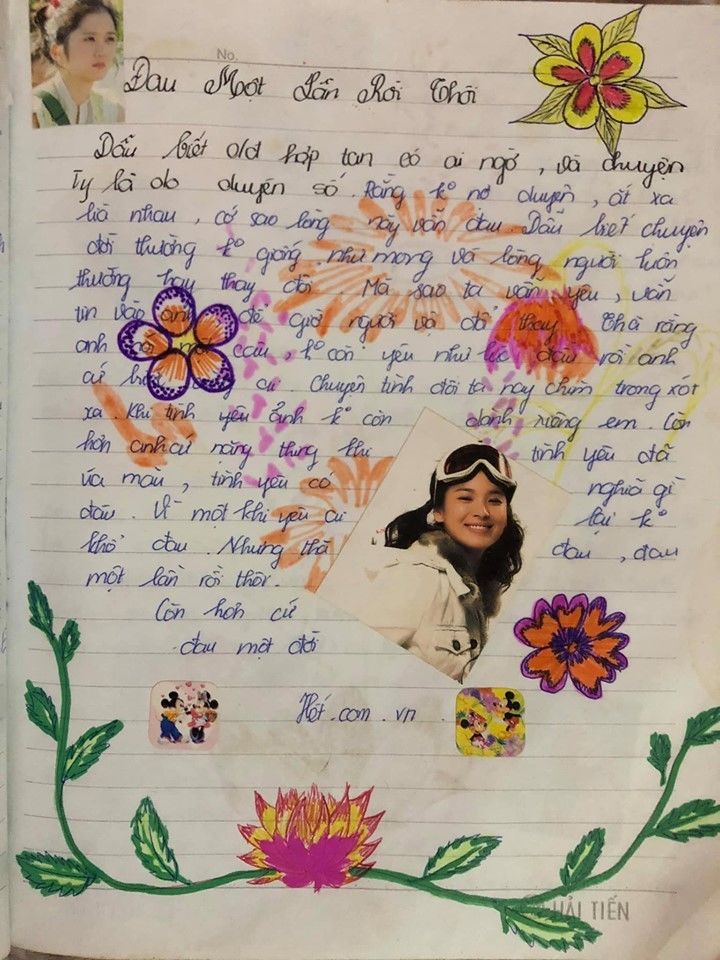 No.
Đau Một Lần Rồi Thôi
Dẫu biết old hợp tan có ai ngờ, và chuyện
Ty là do duyên số. Rằng k° nợ duyên, ắt xa
lìa nhau, cớ sao lòng này vẫn đau. Dẫu biết chuyện
đời thường k° giống như mong và lòng người luôn
thường hay thay đổi. Mà sao ta vẫn yêu, vẫn
tin vào anh để giờ người vội đổi thay. Thà rằng
anh nói một câu, k° còn yêu như lúc đầu rồi anh
cứ. Chuyện tình đôi ta nay chìm trong xót
xa. Khi tình yêu ảnh k° còn dành riêng em. Còn
hơn anh cứ nặng thung khi tình yêu đã
úa màu, tình yêu có nghĩa gì
đâu. Vì một khi yêu ai lại k°
khổ đau. Nhưng thà đau, đau
một lần rồi thôi.
Còn hơn cứ
đau một đời
Hết.com.vn.
HẢI TIẾN